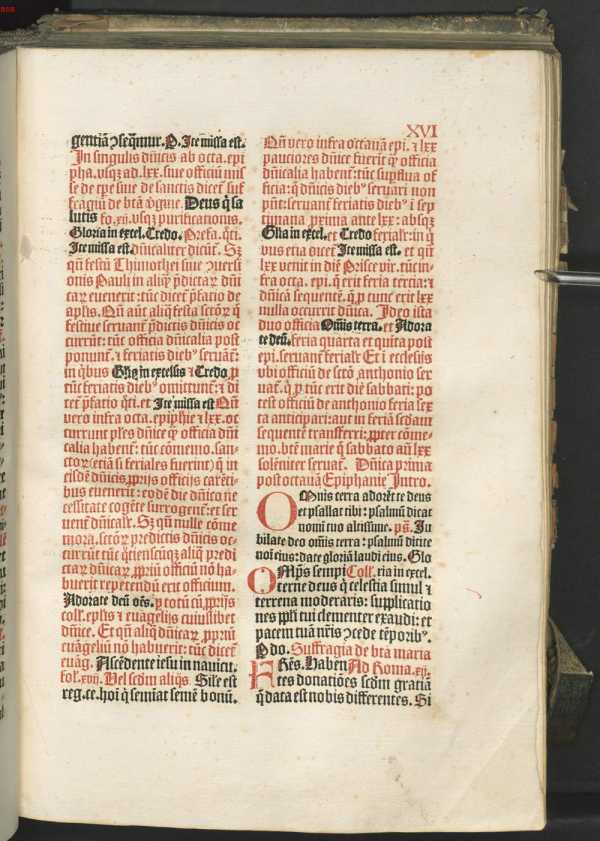 XVI
gentiā ⁊ seq̄mur. P. Ite missa est.
In singulis dn̄icis ab octa. epi
pha. vsq₃ ad .lxx. siue officiū mis
se de tp̄e siue de sanctis dicet̄ suf
fragiū de btā v̓gine. Deus q̄ sa
lutis fo. xij. vsq₃ purificationis.
Gloria in excel. Credo. Prefa. q̄ti.
Ite missa est. dn̄icaliter dicūt̄. Sꝫ
qn̄ festū Thimothei siue ⁊uersi
onis Pauli in aliq̄ p̄dictaꝝ dn̄i
caꝝ euenerit: tūc dicet̄ p̄fatio de
apl̄is. Qn̄ aūt aliq̄ festa sctōꝝ q̄
festiue seruant̄ p̄dictis dn̄icis oc
currūt: tūc officia dn̄icalia post
ponunt̄. ⁊ feriatis dieb⁹ seruāt̄:
in q̄bus Gl̄ia in excelsis ⁊ Credo ꝓ
tūc feriatis dieb⁹ omittunt̄: ⁊ di
cet̄ p̄fatio q̄ti. et Ite missa est Qn̄
vero infra octa. epiphīe ⁊ lxx. oc
currunt ples dn̄ice q̄ꝝ officia dn̄i
calia habent̄: tūc cōmemo. san-
ctoꝝ (etiā si feriales fuerint) q̄ in
eisdē dn̄icis ꝓprijs officijs carēti-
bus euenerit: eodē die dn̄ico ne
cessitate cogēte surrogent̄: et ser
uent̄ dn̄icalr̄. Sꝫ qn̄ nulle cōme
mora. sctōꝝ predictis dn̄icis oc-
currūt tūc q̄tienscūq₃ aliq̄ predi
ctaꝝ dn̄icaꝝ ꝓpriū officiū nō ha-
buerit repetendū erit officium.
Adorate deū oēs. ꝓ totū cū ꝓprijs
coll̄. epl̄is ⁊ euāgelijs cuiuslibet
dn̄ice. Et qn̄ aliq̄ dn̄icaꝝ ꝓpriū
euāgeliū nō habuerit: tūc dicet̄
euāg. Ascēdente iesu in nauicu.
fol. xvij. Vel scd̄m aliq̄s. Sil̄e est
reg. ce. hoi q̄ semiat semē bonū.
Qn̄ vero infra octauā epi. ⁊ lxx
pauciores dn̄ice fuerit q̄ officia
dn̄icalia habent̄: tūc supflua of
ficia: q̄ dn̄icis dieb⁹ seruari non
pn̄t: seruant̄ feriatis dieb⁹ ī sep
timana proxima ante lxx: absq₃
Gl̄ia in excel. et Credo ferialr̄: in q̄
bus etiā dicet̄ Ite missa est. et qn̄
lxx venit in diē Prisce vir. tūc in-
fra octa. epi. q̄ erit feria tercia: ⁊
dn̄icā sequentē. q̄ ꝓ tunc erit lxx
nulla occurrit dn̄ica. Ideo ista
duo officia Om̄is terra. et Adora
te deū. feria quarta et quīta post
epi. seruant̄ ferialr̄ Et ī ecclesijs
vbi officiū de sctō anthonio ser
uat̄. q̄ ꝓ tūc erit die sabbati: po
test officiū de anthonio feria sex
ta anticipari: aut in feriā scd̄am
sequentē transferri: ꝓpter cōme-
mo. btē marie q̄ sabbato an̄ lxx
solēniter seruat̄. Dn̄ica prima
post octauā Epiphanie Intro.
Omnis terra adoret te deus
et psallat tibi: psalmū dicat
nomī tuo altissime. pš. Iu
bilate deo om̄is terra: psalmū dicite
noī eius: date gloriā laudi eius. Glo
ria in excel.
Omp̄s sempi Coll̄.
terne deus q̄ celestia simul ⁊
terrena moderaris: supplicatio
nes ppl̄i tui clementer exaudi: et
pacem tuā nr̄is ⁊cede tēporib⁹.
P do. Suffragia de btā maria
Frēs. Habēn Ad Roma. xij.
tes donatiōes scd̄m gratiā
q̄ data est nobis differentes. Si